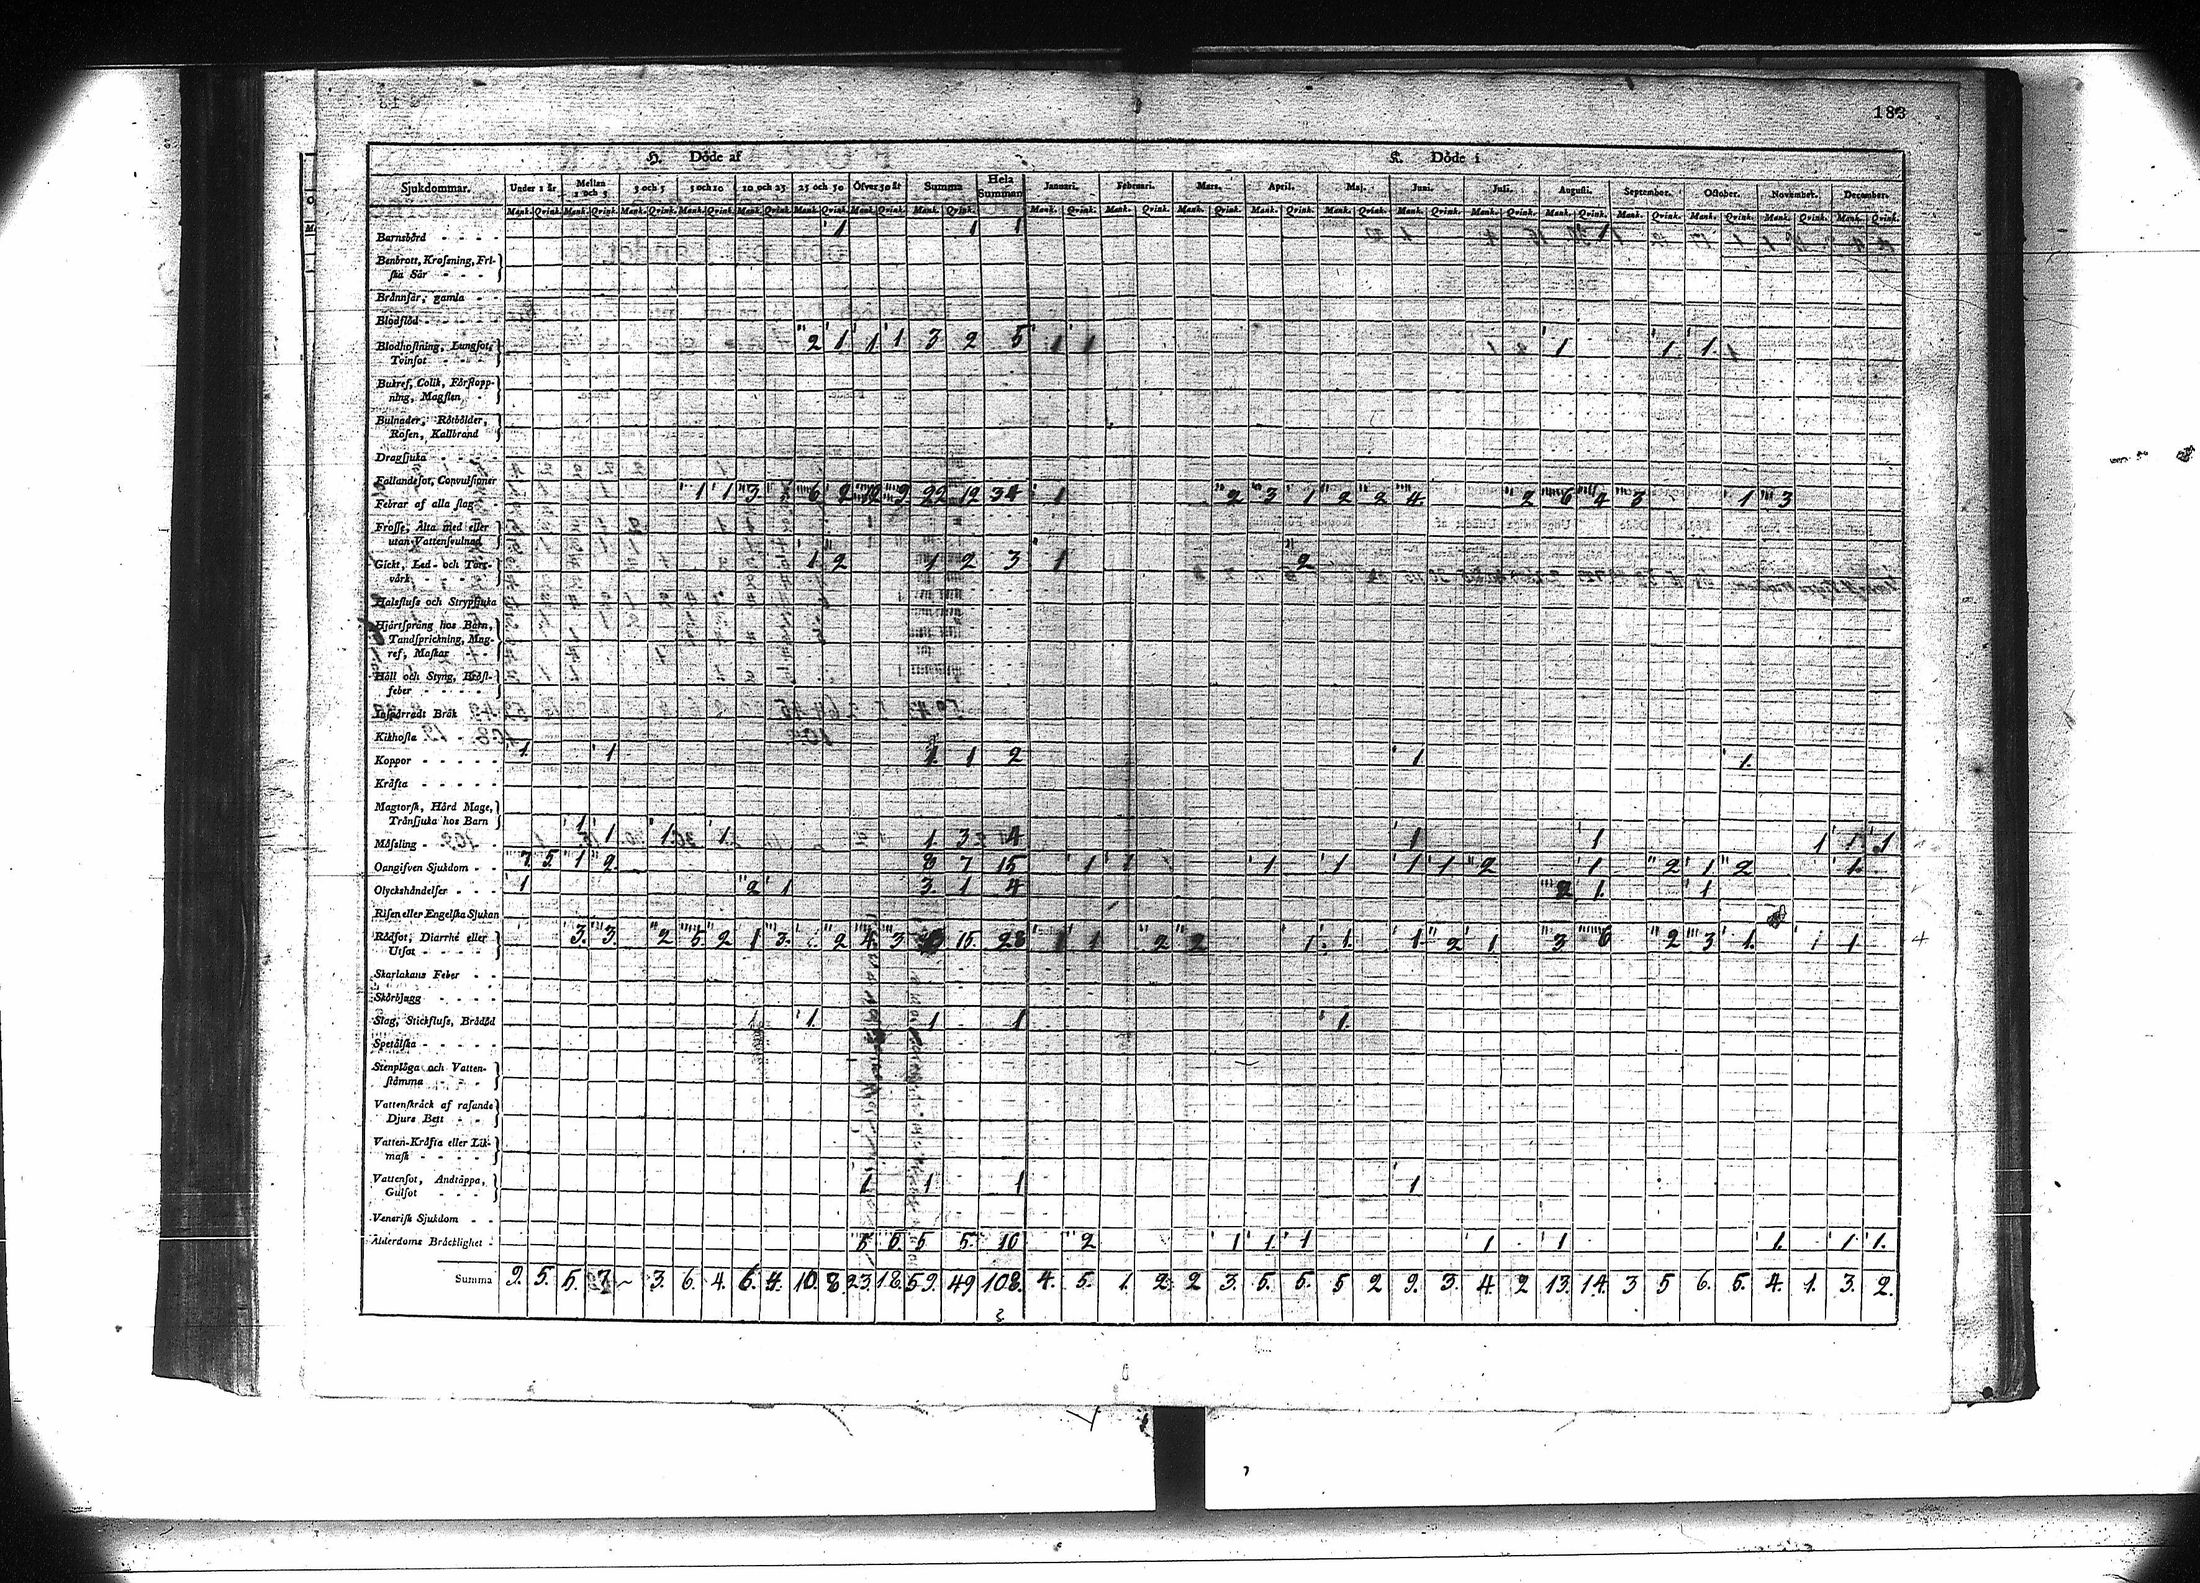 183
H. Döde af K. Döde i
Sjukdommar. Under 1 år. Mellan 1 och 3 3 och 5 5 och 10 10 och 25 25 och 50 Öfver 50 år Summa Hela Summan Januari. Februari. Mars. April. Maj. Juni. Juli. Augusti. September. October. November. December.
Mank. Qvink. Mank. Qvink. Mank. Qvink. Mank. Qvink. Mank. Qvink. Mank. Qvink. Mank. Qvink. Mank. Qvink. Mank. Qvink. Mank. Qvink. Mank. Qvink. Mank. Qvink. Mank. Qvink. Mank. Qvink. Mank. Qvink. Mank. Qvink. Mank. Qvink. Mank. Qvink. Mank. Qvink. Mank. Qvink.
Barnsbörd - - - - 1 1 1 1
Benbrott, Krossning, Fri-
ska Sår - - -
Brännsår, gamla - -
Blodflöd -
Blodhostning, Lungsot, 2 1 1 1 3 2 5 1 1 1 1. 1.
Tvinsot
Bukref, Colik, Förstopp-
ning, Magsten -
Bulnader, Rötbölder,
Rosen, Kallbrand
Dragsjuka - - - -
Fallandesot, Convulsioner
Febrar af alla slag - 1 1 3 6 2 12 9 22 12 34 1 2 3 1 2 2 4. 2 6 4 3 1 3
Frossa, Älta med eller
utan Vattensvulnad
Gickt, Led- och Torr- 1 2 1 2 3 1 2
värk, - - -
Halsfluss och Strypsjuka
Hjärtsprång hos Barn,
Tandsprickning, Mag-
ref, Maskar - -
Håll och Styng, Bröst-
feber - - - -
Inspärradt Bråk
Kikhosta
Koppor - - - - - 1. 1 1. 1 2 1 1.
Kräfta - - - - -
Magtorsk, Hård Mage,
Tränsjuka hos Barn
Mässling - - - - 1 1 1. 1. 1. 3 4 1 1 1 1. 1
Oangifven Sjukdom - - 7. 5. 1 2. 8 7 15 1 1 1 1 1 1 2 1 2 1 2 1.
Olyckshändelser - - - 1 2 1 3. 1 4 2 1. 1
Risen eller Engelska Sjukan
Rödsot, Diarrhé eller 3. 3. 2 5. 2 1 3. 2 4. 3 15. 28 1 1 2 2 1 1. 1. 2 1. 3 6 2 3 1. 1 1 4
Utsot - - - -
Skarlakans Feber - -
Skörbjugg - - - -
Slag, Stickfluss, Brådöd 1. 1 1 1.
Spetälska - - - - -
Stenplåga och Vatten-
stämma - - -
Vattenskräck af rasande
Djurs Bett - -
Vatten-Kräfta eller Lik-
mask - - - -
Vattensot, Andtäppa, 1 1 1 1
Gulsot - - -
Venerisk Sjukdom - -
Ålderdoms Bräcklighet - 5 5. 5 5. 10 2 1 1. 1 1 1 1. 1 1.
Summa 9. 5. 5. 7. ~ 3. 6. 4. 6. 4. 10. 8. 23. 18. 59. 49 108. 4. 5. 1. 2. 2 3. 5. 5. 5 2 9. 3. 4. 2 13. 14. 3 5 6. 5. 4. 1. 3. 2.